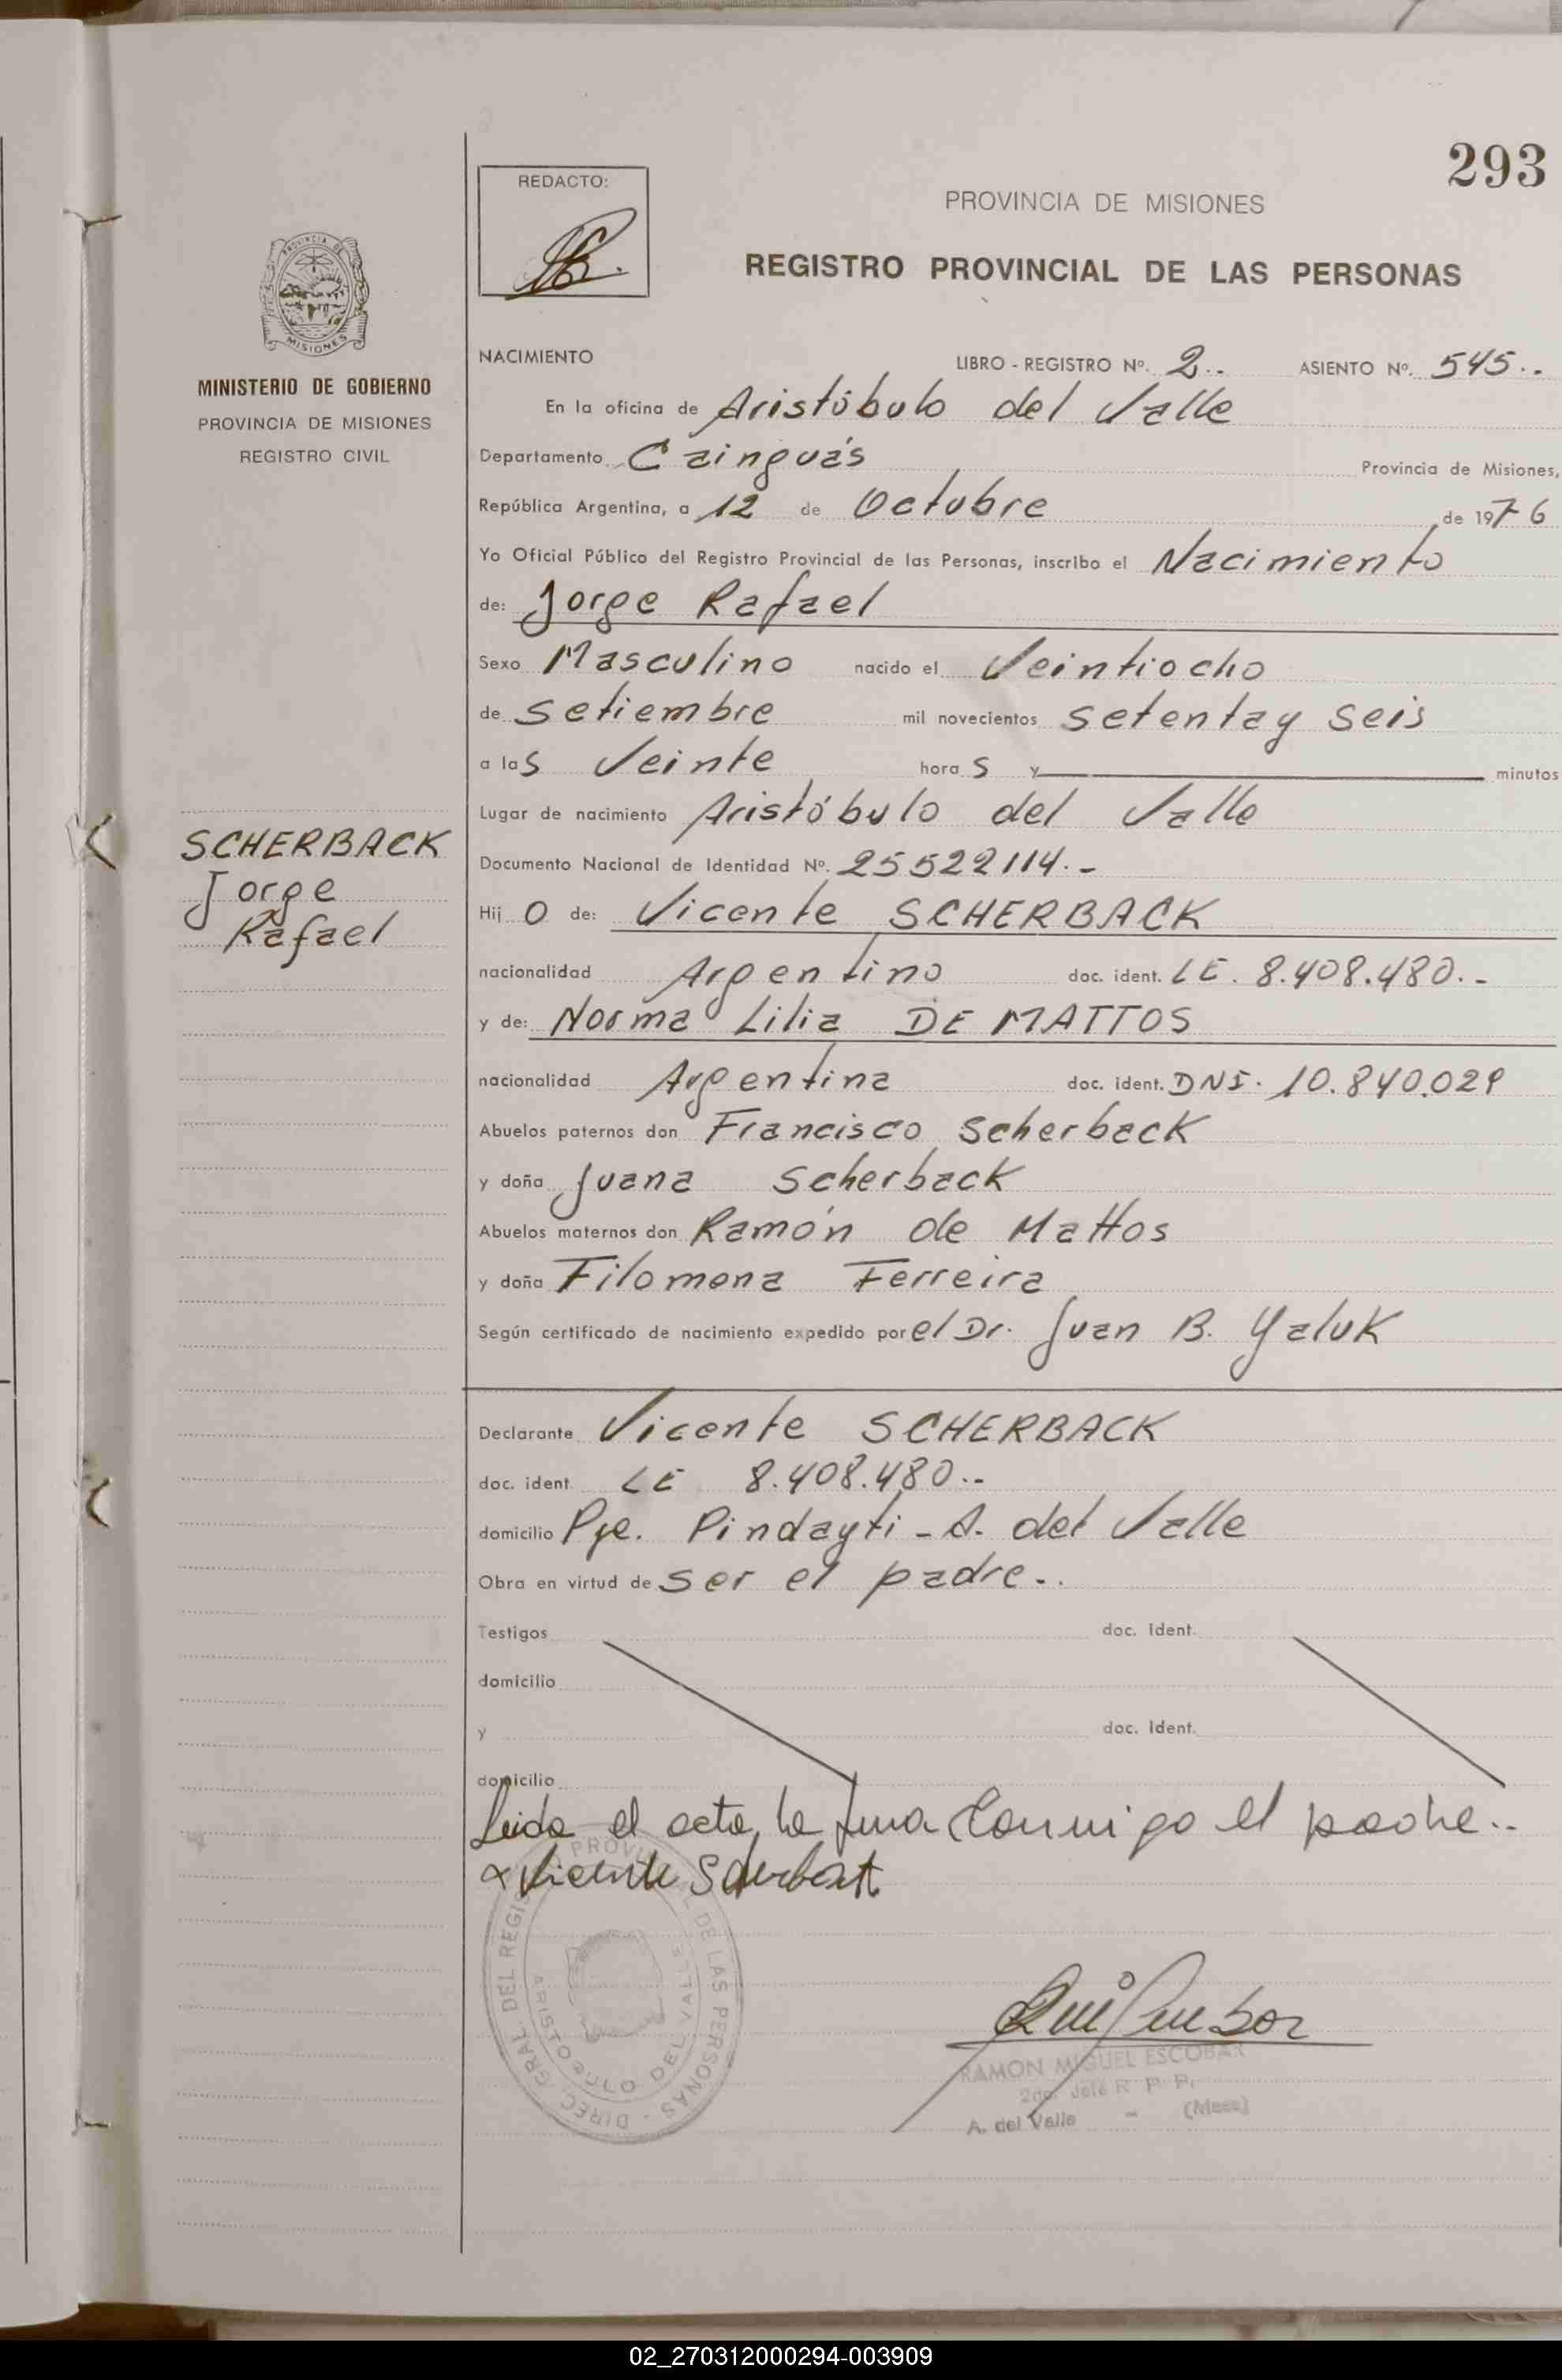 293
REDACTO:
PROVINCIA DE MISIONES
REGISTRO PROVINCIAL DE LAS PERSONAS
PROVINCIA DE
MISIONES
MINISTERIO DE GOBIERNO
PROVINCIA DE MISIONES
REGISTRO CIVIL
SCHERBACK
Jorge
Rafael
NACIMIENTO LIBRO - REGISTRO Nº. 2.. ASIENTO Nº. 545..
En la oficina de Aristóbulo del Valle
Departamento Cainguás Provincia de Misiones,
República Argentina, a 12 de Octubre de 1976
Yo Oficial Público del Registro Provincial de las Personas, inscribo el Nacimiento
de: Jorge Rafael
Sexo Masculino nacido el Veintiocho
de Setiembre mil novecientos setenta y seis
a las Veinte horas y minutos
Lugar de nacimiento Aristóbulo del Valle
Documento Nacional de Identidad Nº. 25522114.-
Hijo de: Vicente SCHERBACK
nacionalidad Argentino doc. ident. LE. 8.408.480.-
y de: Norma Lilia DE MATTOS
nacionalidad Argentina doc. ident. DNI. 10.840.029
Abuelos paternos don Francisco Scherback
y doña Juana Scherback
Abuelos maternos don Ramón de Mattos
y doña Filomena Ferreira
Según certificado de nacimiento expedido por el Dr. Juan B. Yaluk
Declarante Vicente SCHERBACK
doc. ident. LE 8.408.480.-
domicilio Pje. Pindayti - A. del Valle
Obra en virtud de ser el padre..
Testigos doc. Ident.
domicilio
y doc. Ident.
domicilio
Leida el acta, la firma conmigo el padre..
Vicente
DIREC. GRAL. DEL REGISTRO PROVINCIAL DE LAS PERSONAS -
ARISTOBULO DEL VALLE
RAMON MIGUEL ESCOBAR
2do. Jefe R. P. P.
A. del Valle - (Mnes)
02_270312000294-003909